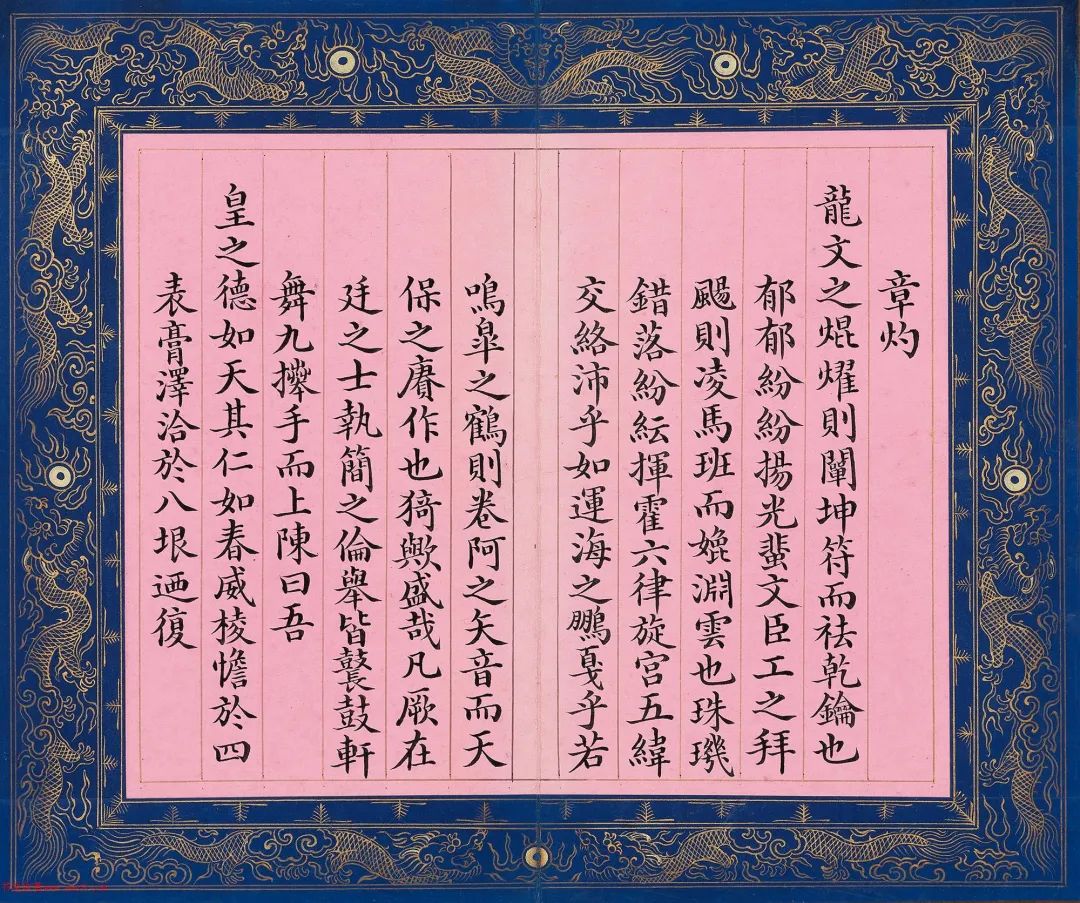 章灼
龍文之焜燿則闡坤符而祛乾鑰也
郁郁紛紛揚光蜚文臣工之拜
颺則凌馬班而媲淵雲也珠璣
錯落紛紜揮霍六律旋宫五緯
交絡沛乎如運海之鵬戛乎若
鳴皐之鶴則卷阿之矢音而天
保之賡作也猗歟盛哉凡厥在
廷之士執簡之倫舉皆鼚鼓軒
舞九攑手而上陳曰吾
皇之德如天其仁如春威棱憺於四
表膏澤洽於八垠迺復